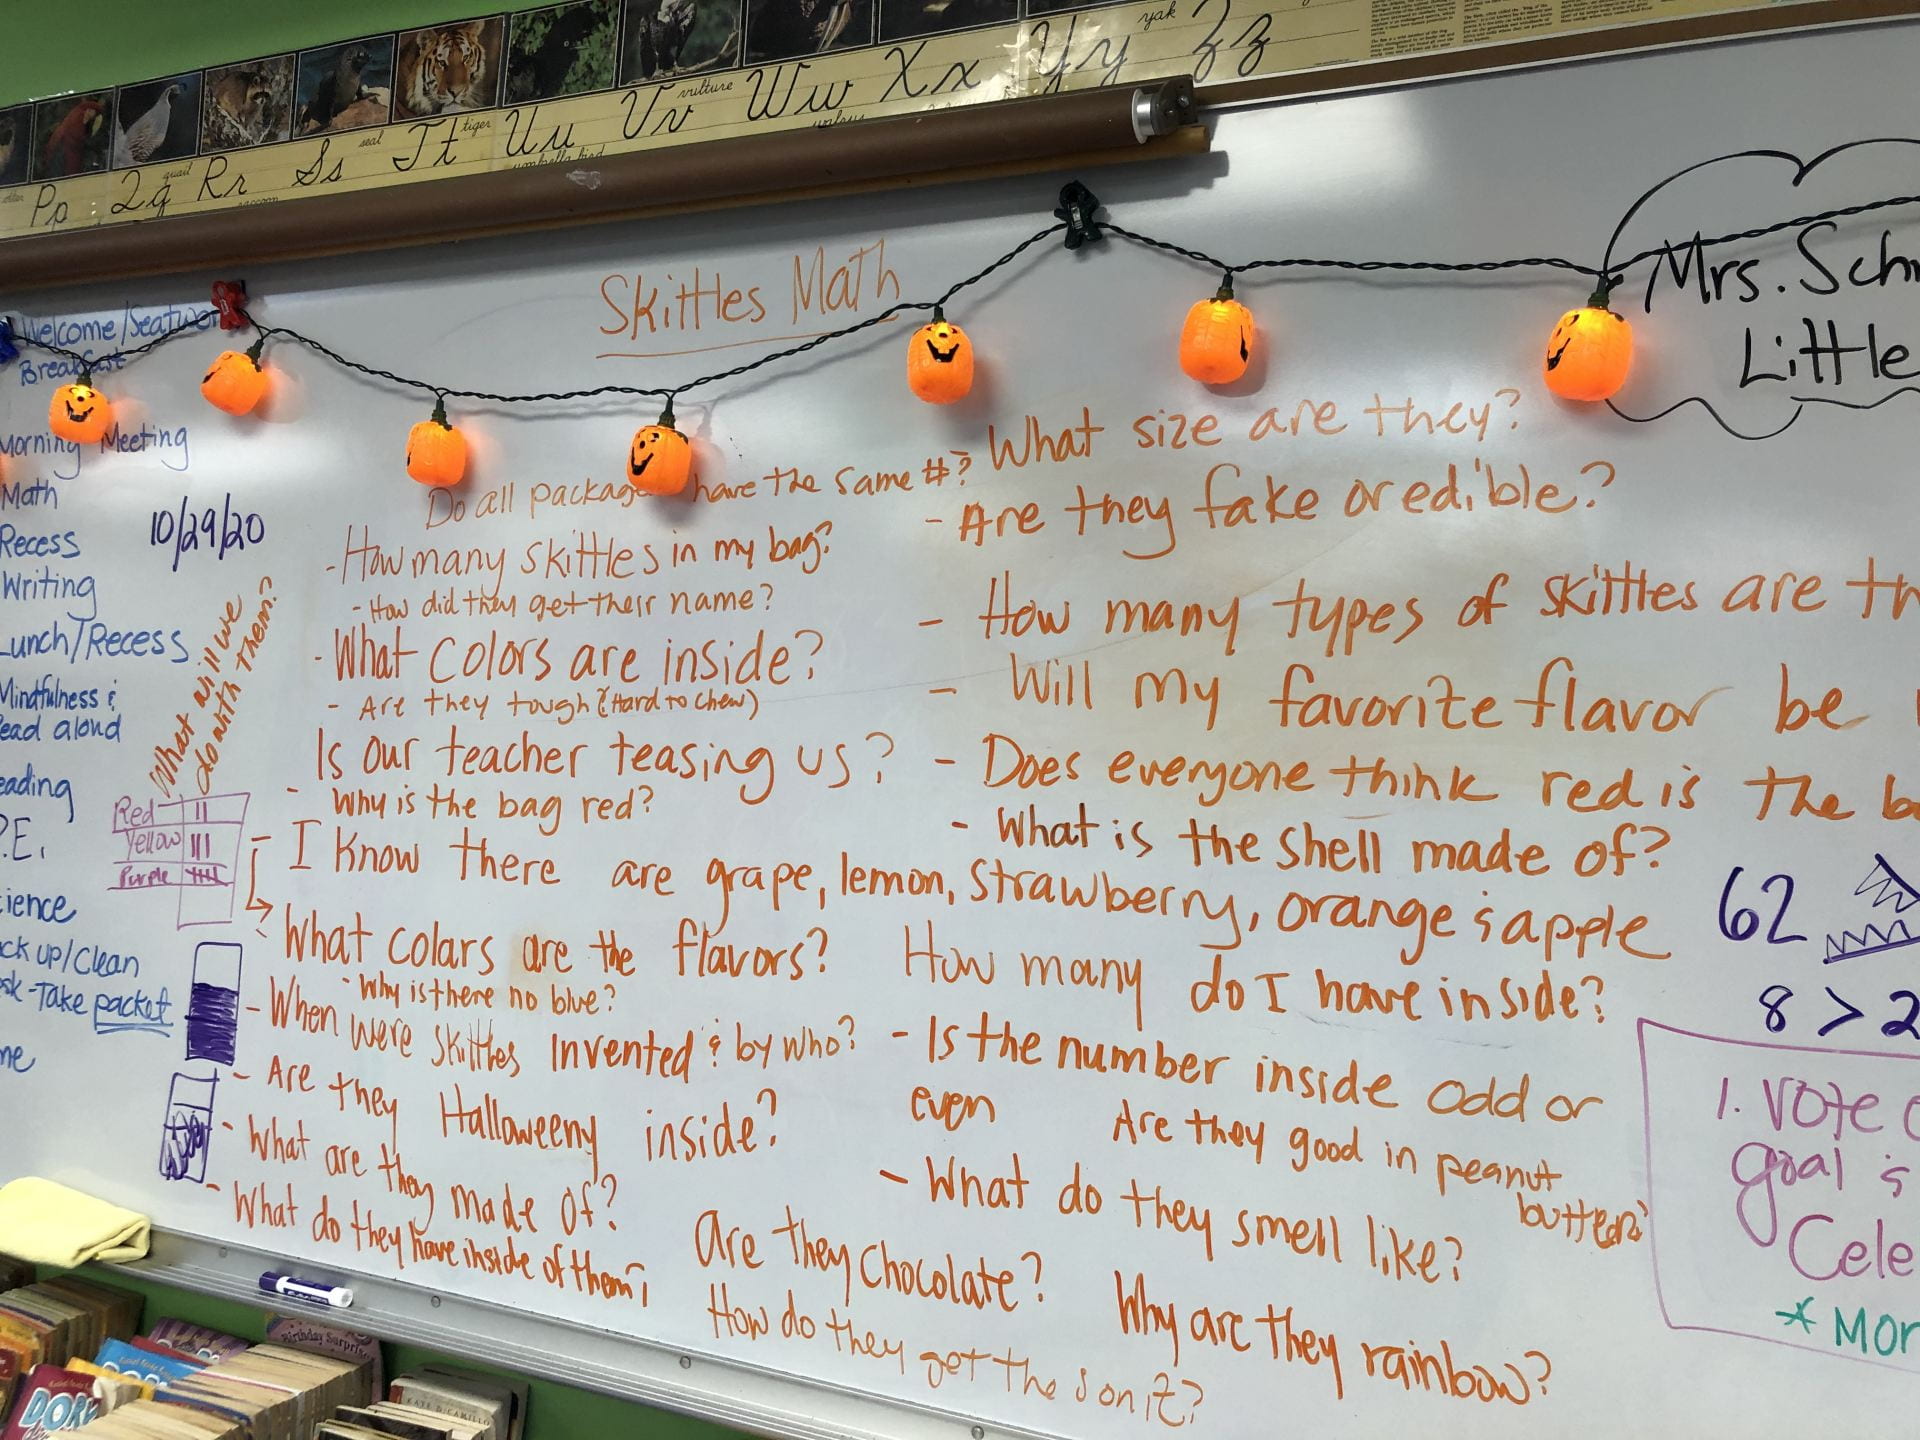 Pp Qq Rr Ss Tt Uu Vv Ww Xx Yy Zz
quail
raccoon
seal
tiger
umbrella bird
vulture
walrus
yak
Skittles Math
Mrs. Sch
Little
Welcome/Seatwor
Breakfast
Morning Meeting
Math
Recess
Writing
Lunch/Recess
Mindfulness &
ead aloud
eading
P.E.
cience
ck up/Clean
sk-Take packet
me
10/29/20
What will we
do with them?
Red II
Yellow III
Purple
Do all package have the same #?
- How many skittles in my bag?
- How did they get their name?
- What colors are inside?
- Are they tough? (Hard to chew)
Is our teacher teasing us?
- Why is the bag red?
- I know there are grape, lemon, strawberry, orange & apple
What colars are the flavors?
- Why is there no blue?
- When were skittles invented & by who?
- Are they Halloweeny inside?
- What are they made of?
- What do they have inside of them?
What size are they?
- Are they fake or edible?
- How many types of skittles are th
- Will my favorite flavor be
- Does everyone think red is the b
- What is the shell made of?
How many do I have inside?
- Is the number inside odd or
even
Are they good in peanut
butter?
- What do they smell like?
Are they chocolate?
Why are they rainbow?
How do they get the s on it?
62
8 > 2
1. Vote
goal &
Cele
* Mor
Birthday Surpris
DORK
KATE DICAMILLO